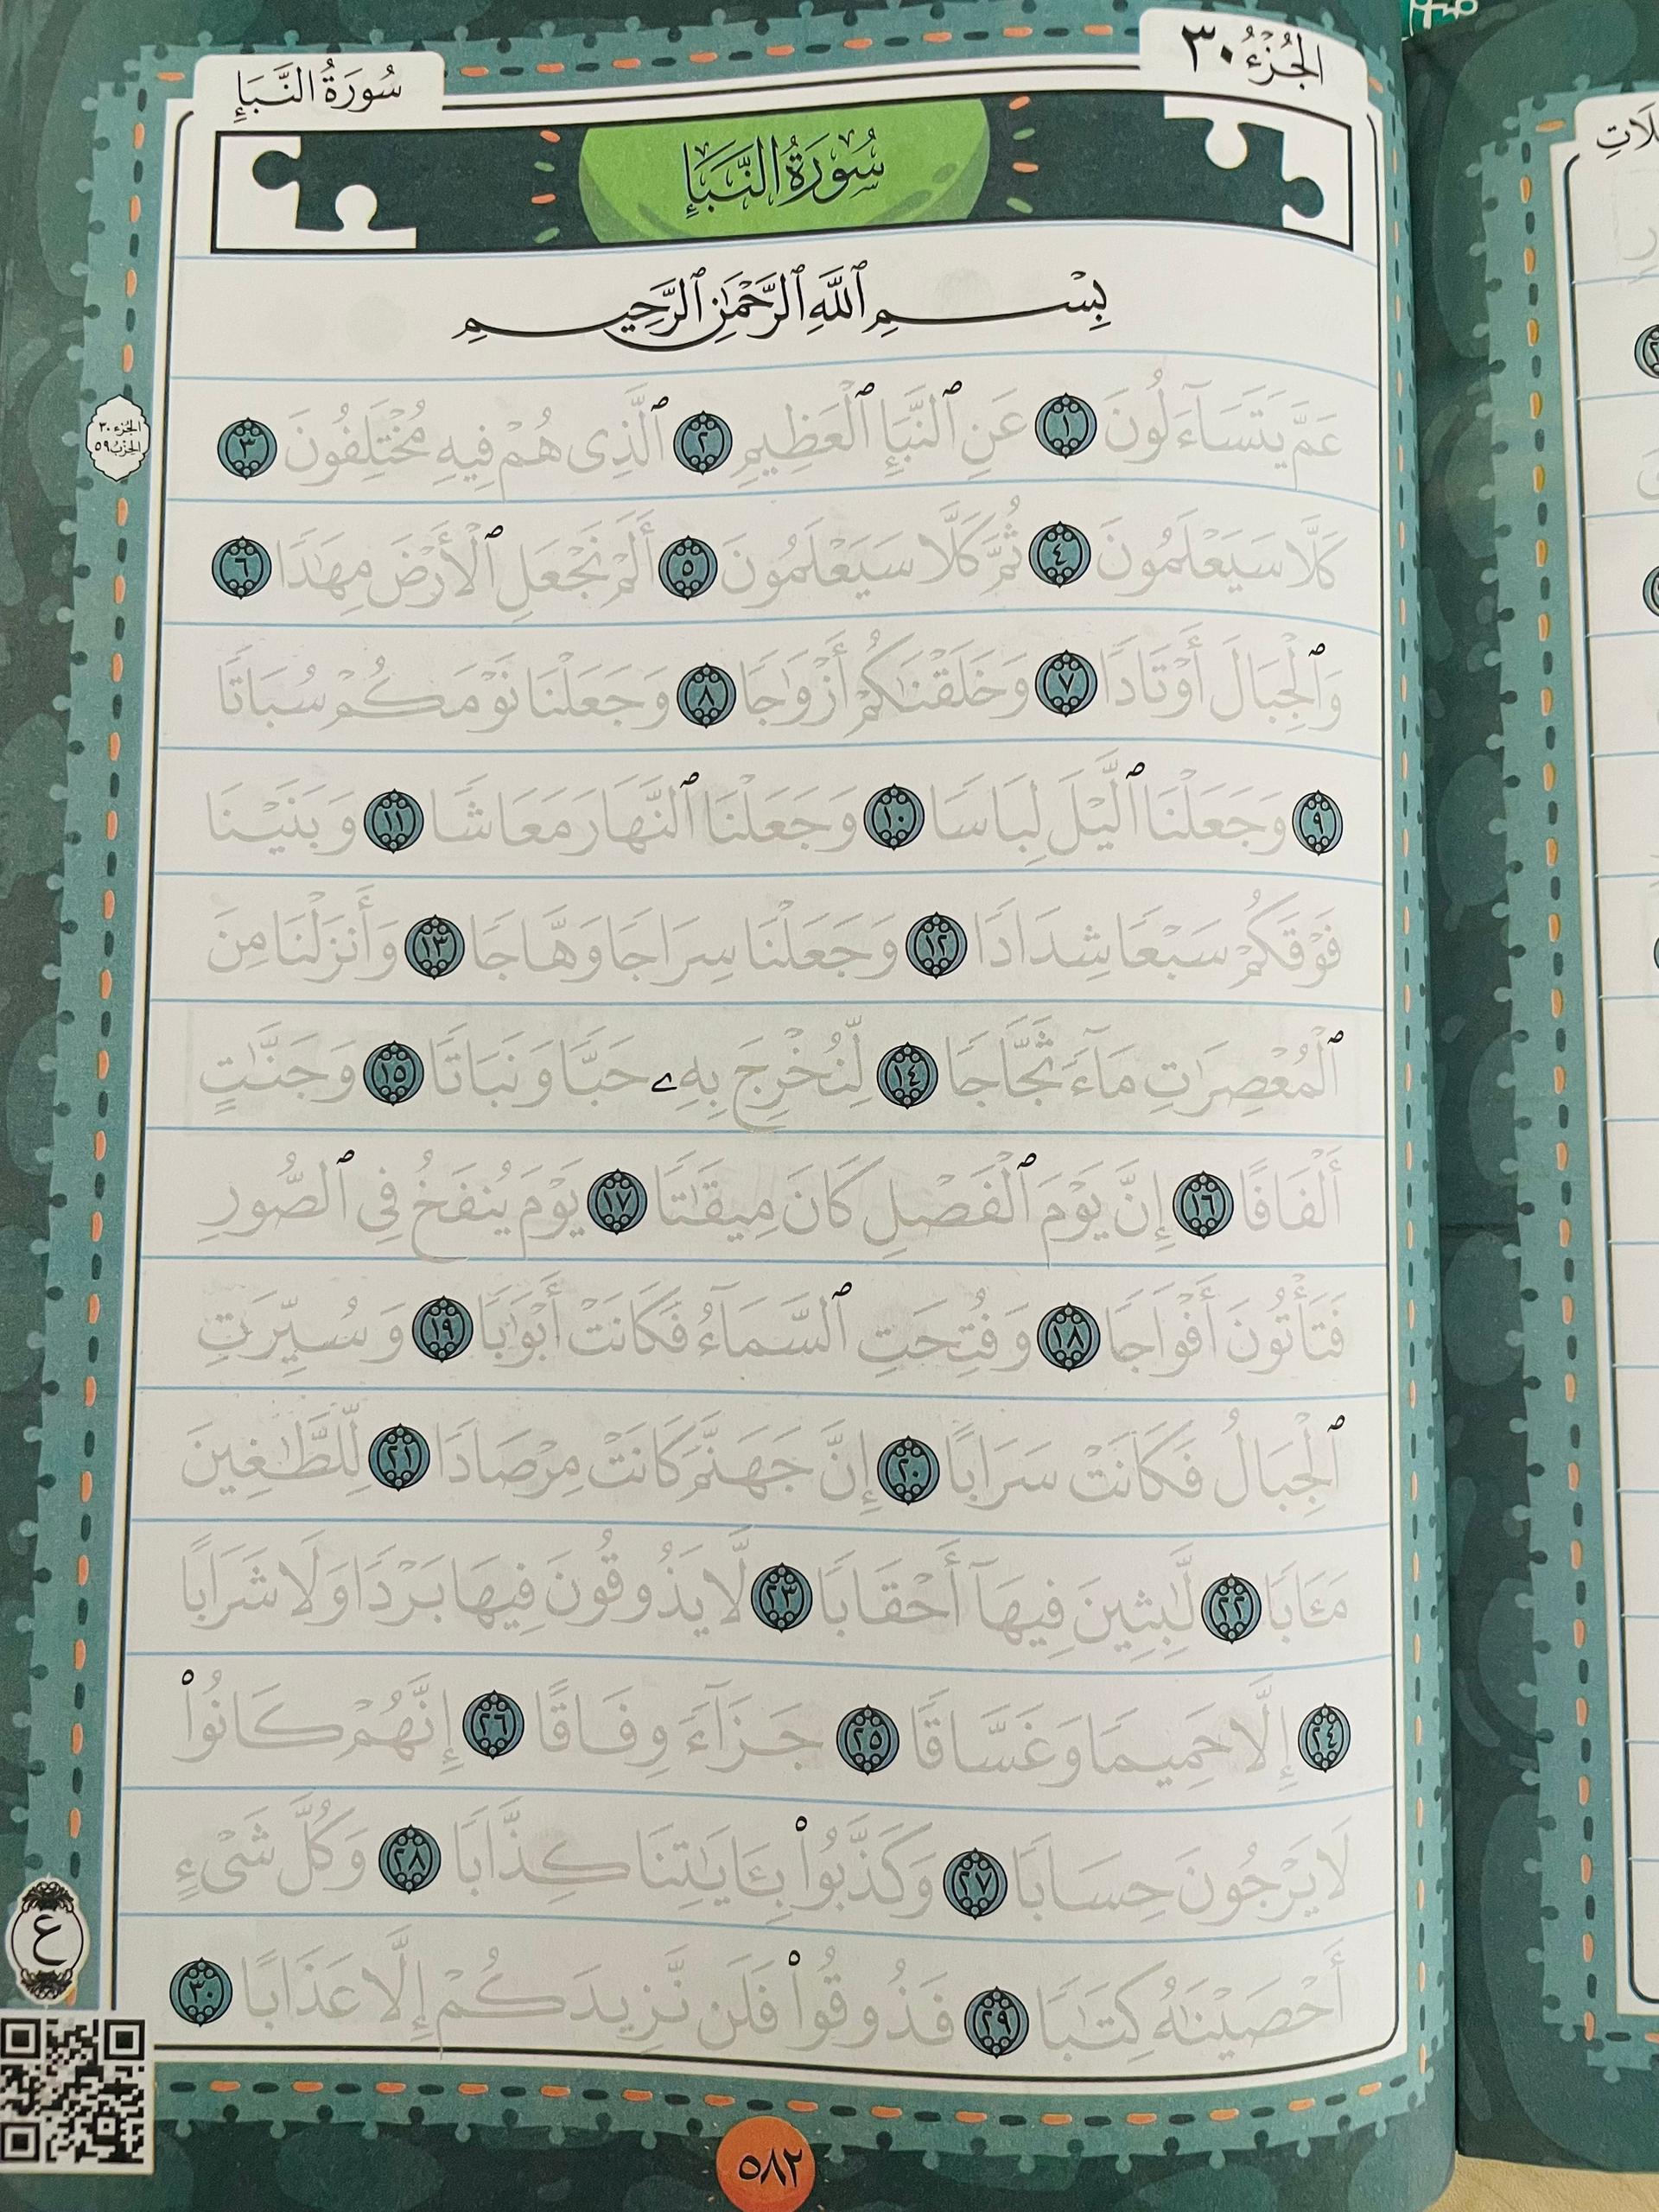 الجُزْءُ ٣٠
سُورَةُ النَّبَإِ
سُورَةُ النَّبَإِ
بِسْمِ ٱللَّهِ ٱلرَّحْمَٰنِ ٱلرَّحِيمِ
عَمَّ يَتَسَآءَلُونَ ١ عَنِ ٱلنَّبَإِ ٱلْعَظِيمِ ٢ ٱلَّذِى هُمْ فِيهِ مُخْتَلِفُونَ ٣
كَلَّا سَيَعْلَمُونَ ٤ ثُمَّ كَلَّا سَيَعْلَمُونَ ٥ أَلَمْ نَجْعَلِ ٱلْأَرْضَ مِهَٰدًا ٦
وَٱلْجِبَالَ أَوْتَادًا ٧ وَخَلَقْنَٰكُمْ أَزْوَٰجًا ٨ وَجَعَلْنَا نَوْمَكُمْ سُبَاتًا
٩ وَجَعَلْنَا ٱلَّيْلَ لِبَاسًا ١٠ وَجَعَلْنَا ٱلنَّهَارَ مَعَاشًا ١١ وَبَنَيْنَا
فَوْقَكُمْ سَبْعًا شِدَادًا ١٢ وَجَعَلْنَا سِرَاجًا وَهَّاجًا ١٣ وَأَنزَلْنَا مِنَ
ٱلْمُعْصِرَٰتِ مَآءً ثَجَّاجًا ١٤ لِّنُخْرِجَ بِهِۦ حَبًّا وَنَبَاتًا ١٥ وَجَنَّٰتٍ
أَلْفَافًا ١٦ إِنَّ يَوْمَ ٱلْفَصْلِ كَانَ مِيقَٰتًا ١٧ يَوْمَ يُنفَخُ فِى ٱلصُّورِ
فَتَأْتُونَ أَفْوَاجًا ١٨ وَفُتِحَتِ ٱلسَّمَآءُ فَكَانَتْ أَبْوَٰبًا ١٩ وَسُيِّرَتِ
ٱلْجِبَالُ فَكَانَتْ سَرَابًا ٢٠ إِنَّ جَهَنَّمَ كَانَتْ مِرْصَادًا ٢١ لِّلطَّٰغِينَ
مَـَٔابًا ٢٢ لَّٰبِثِينَ فِيهَآ أَحْقَابًا ٢٣ لَّا يَذُوقُونَ فِيهَا بَرْدًا وَلَا شَرَابًا
٢٤ إِلَّا حَمِيمًا وَغَسَّاقًا ٢٥ جَزَآءً وِفَاقًا ٢٦ إِنَّهُمْ كَانُوا۟
لَا يَرْجُونَ حِسَابًا ٢٧ وَكَذَّبُوا۟ بِـَٔايَٰتِنَا كِذَّابًا ٢٨ وَكُلَّ شَىْءٍ
أَحْصَيْنَٰهُ كِتَٰبًا ٢٩ فَذُوقُوا۟ فَلَن نَّزِيدَكُمْ إِلَّا عَذَابًا ٣٠
الجُزْء ٣٠
الحِزْبُ ٥٩
ع
٥٨٢